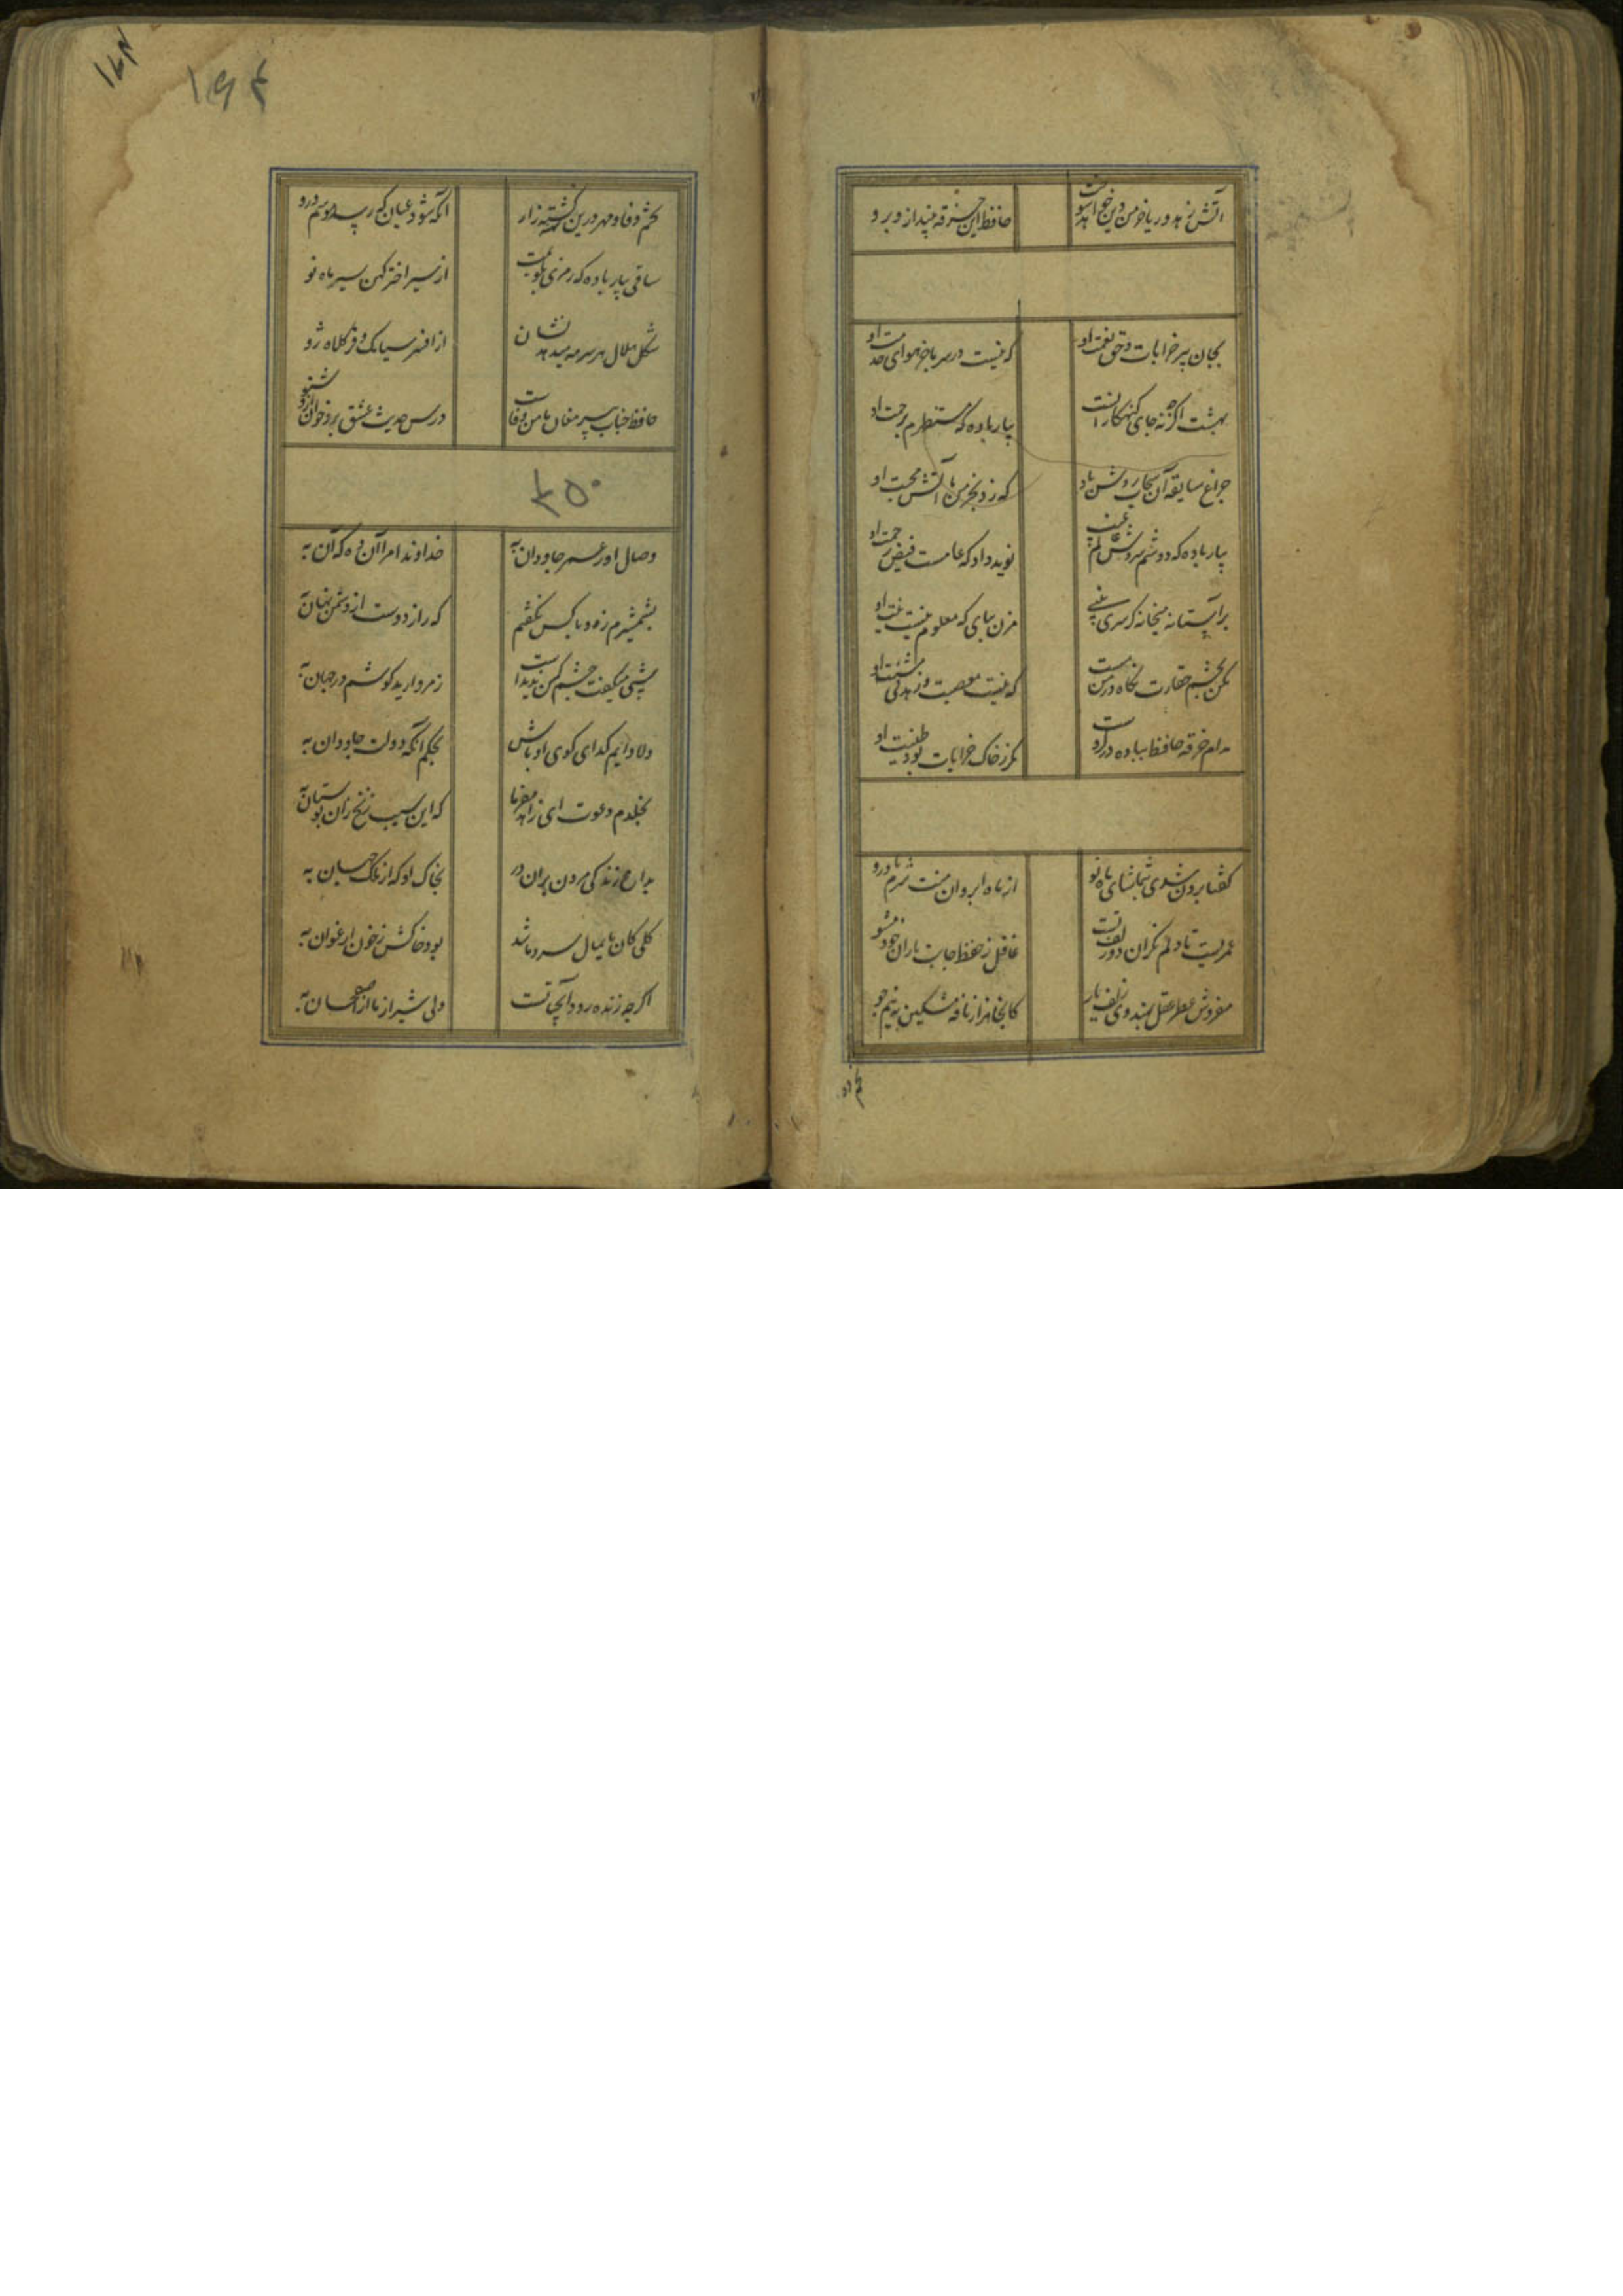 آتش زهد و ریا خرمن دین خواهد سوخت
حافظ این خرقه بینداز و برو
بجان پیر خرابات و حق نعمت او
که نیست در سر ما جز هوای خدمت او
بهشت اگرچه نه جای کنهکارانست
بیار باده که مستظهرم برحمت او
چراغ صاعقه آن سحاب روشن باد
که زد بخرمن ما آتش محبت او
بیار باده که دوشم سروش عالم غیب
نوید داد که عامست فیض رحمت او
بر آستانه میخانه گر سری بینی
مزن بپای که معلوم نیست نیت او
مکن بچشم حقارت نگاه در من مست
که نیست معصیت و زهد بی مشیت او
مدام خرقه حافظ بباده در گروست
مگر ز خاک خرابات بود طینت او
گفتا برون شدی بتماشای ماه نو
از ماه ابروان منت شرم باد رو
عمریست تا دلم نگران دو زلف تست
غافل ز حفظ جانب یاران خود مشو
مفروش عطر عقل بهندوی زلف یار
کانجا هزار نافه مشکین به نیم جو
تخم
۱۶۴
۱۶۴
تخم وفا و مهر درین کهنه کشته زار
آنگه شود عیان که رسد موسم درو
ساقی بیار باده که رمزی بگویمت
از سیر اختر کهن سیر ماه نو
شکل هلال هر سر مه میدهد نشان
از افسر سیامک و فر کلاه زو
حافظ جناب پیر مغان مامن وفاست
درس حدیث عشق برو خوان و زو شنو
۴۵۰
وصال او ز عمر جاودان به
خداوندا مرا آن ده که آن به
بشمشیرم زد و با کس نگفتم
که راز دوست از دشمن نهان به
شبی میگفت چشم کس ندیدست
ز مروارید گوشم در جهان به
دلا دایم گدای کوی او باش
بحکم آنکه دولت جاودان به
بخلدم دعوت ای زاهد مفرما
که این سیب زنخ زان بوستان به
بداغ بندگی مردن بران در
بخاک او که از ملک جهان به
گلی کان پایمال سرو ما شد
بود خاکش ز خون ارغوان به
اگرچه زنده رود آب حیاتست
ولی شیراز ما از اصفهان به